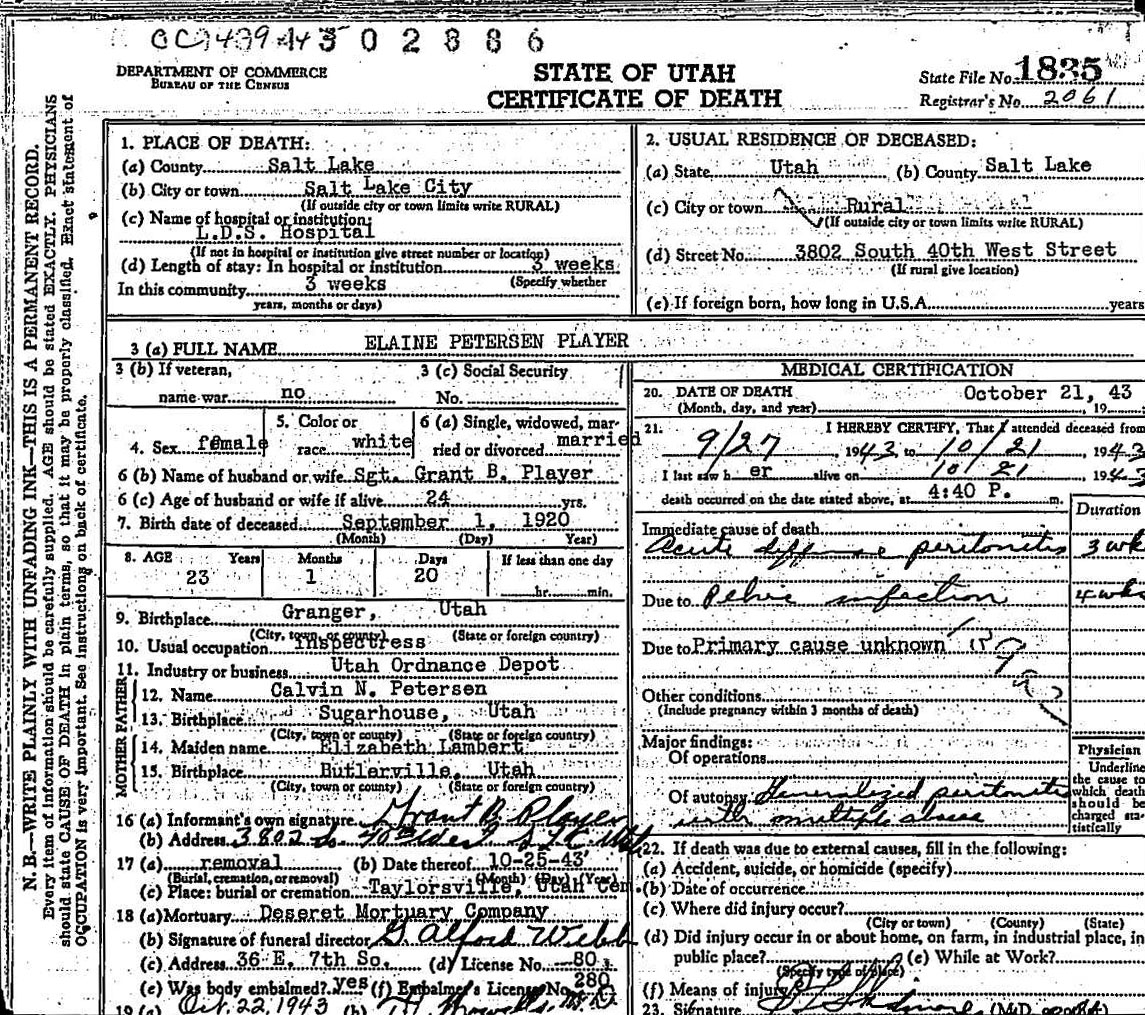 OCT 439 443 0 2 8 8 6
DEPARTMENT OF COMMERCE
BUREAU OF THE CENSUS
STATE OF UTAH
CERTIFICATE OF DEATH
State File No. 1835
Registrar's No. 2061
N. B.—WRITE PLAINLY WITH UNFADING INK—THIS IS A PERMANENT RECORD.
Every item of information should be carefully supplied. AGE should be stated EXACTLY. PHYSICIANS
should state CAUSE OF DEATH in plain terms, so that it may be properly classified. Exact statement of
OCCUPATION is very important. See instructions on back of certificate.
1. PLACE OF DEATH:
(a) County Salt Lake
(b) City or town Salt Lake City
(If outside city or town limits write RURAL)
(c) Name of hospital or institution:
L.D.S. Hospital
(If not in hospital or institution give street number or location)
(d) Length of stay: In hospital or institution 3 weeks
(Specify whether
In this community 3 weeks
years, months or days)
2. USUAL RESIDENCE OF DECEASED:
(a) State Utah (b) County Salt Lake
(c) City or town Rural
(If outside city or town limits write RURAL)
(d) Street No. 3802 South 40th West Street
(If rural give location)
(e) If foreign born, how long in U.S.A. years
3 (a) FULL NAME ELAINE PETERSEN PLAYER
3 (b) If veteran,
name war no
3 (c) Social Security
No.
4. Sex female
5. Color or
race white
6 (a) Single, widowed, mar-
ried or divorced married
6 (b) Name of husband or wife Sgt. Grant B. Player
6 (c) Age of husband or wife if alive 24 yrs.
7. Birth date of deceased September 1, 1920
(Month) (Day) Year)
8. AGE Years Months Days If less than one day
23 1 20 hr. min.
9. Birthplace Granger, Utah
(City, town, or county) (State or foreign country)
10. Usual occupation Inspectress
11. Industry or business Utah Ordnance Depot
FATHER
12. Name Calvin N. Petersen
13. Birthplace Sugarhouse, Utah
(City, town or county) (State or foreign country)
MOTHER
14. Maiden name Elizabeth Lambert
15. Birthplace Butlerville, Utah
(City, town or county) (State or foreign country)
16 (a) Informant's own signature Grant B. Player
(b) Address 3802 So. 40th West S L C Utah
17 (a) removal (b) Date thereof 10-25-43
(Burial, cremation, or removal) (Month) (Day) (Year)
(c) Place: burial or cremation Taylorsville, Utah Cem.
18 (a) Mortuary Deseret Mortuary Company
(b) Signature of funeral director G Alford Webb
(c) Address 36 E. 7th So. (d) License No. 80
(e) Was body embalmed? yes (f) Embalmer's License No. 280
19 (a) Oct. 22, 1943 (b) M.D.
MEDICAL CERTIFICATION
20. DATE OF DEATH October 21, 43
(Month, day, and year) , 19
21. I HEREBY CERTIFY, That I attended deceased from
9/27 1943 to 10/21 1943
I last saw h er alive on 10/21 1943
death occurred on the date stated above, at 4:40 P. m.
Duration
Immediate cause of death
Acute diffuse peritonitis 3 wk
Due to Pelvic infection 4 wks
Due to Primary cause unknown
Other conditions
(Include pregnancy within 3 months of death)
Major findings:
Of operations
Of autopsy Generalized peritonitis
with multiple abscess
Physician
Underline
the cause to
which death
should be
charged sta-
tistically
22. If death was due to external causes, fill in the following:
(a) Accident, suicide, or homicide (specify)
(b) Date of occurrence
(c) Where did injury occur?
(City or town) (County) (State)
(d) Did injury occur in or about home, on farm, in industrial place, in
public place? (e) While at Work?
(Specify type of place)
(f) Means of injury
23. Signature (M.D. or other)